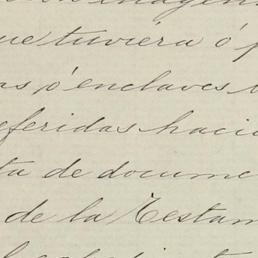 que tuviera ó p
as ó enclaves
eferidas haci
ta de docume
de la Testam